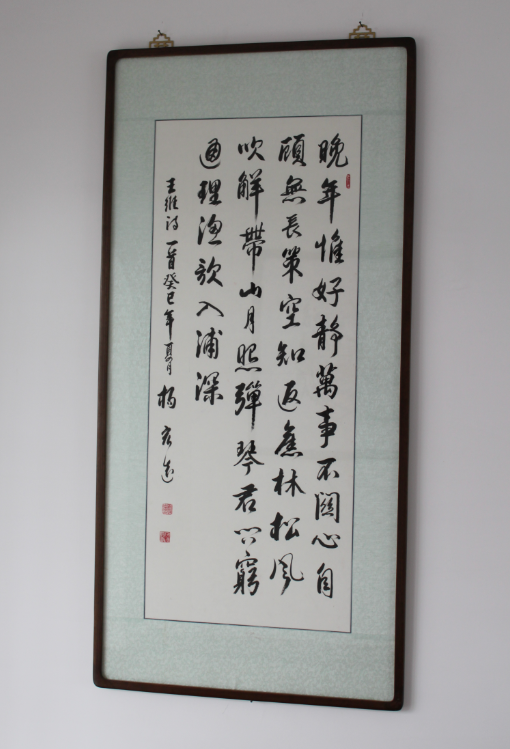 晚年惟好靜萬事不關心自
顧無長策空知返舊林松風
吹解帶山月照彈琴君問窮
通理漁歌入浦深
王維詩一首癸巳年夏月楊